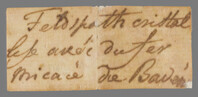 Feldspath cristal
lisé avec du fer
micacé de Bavén